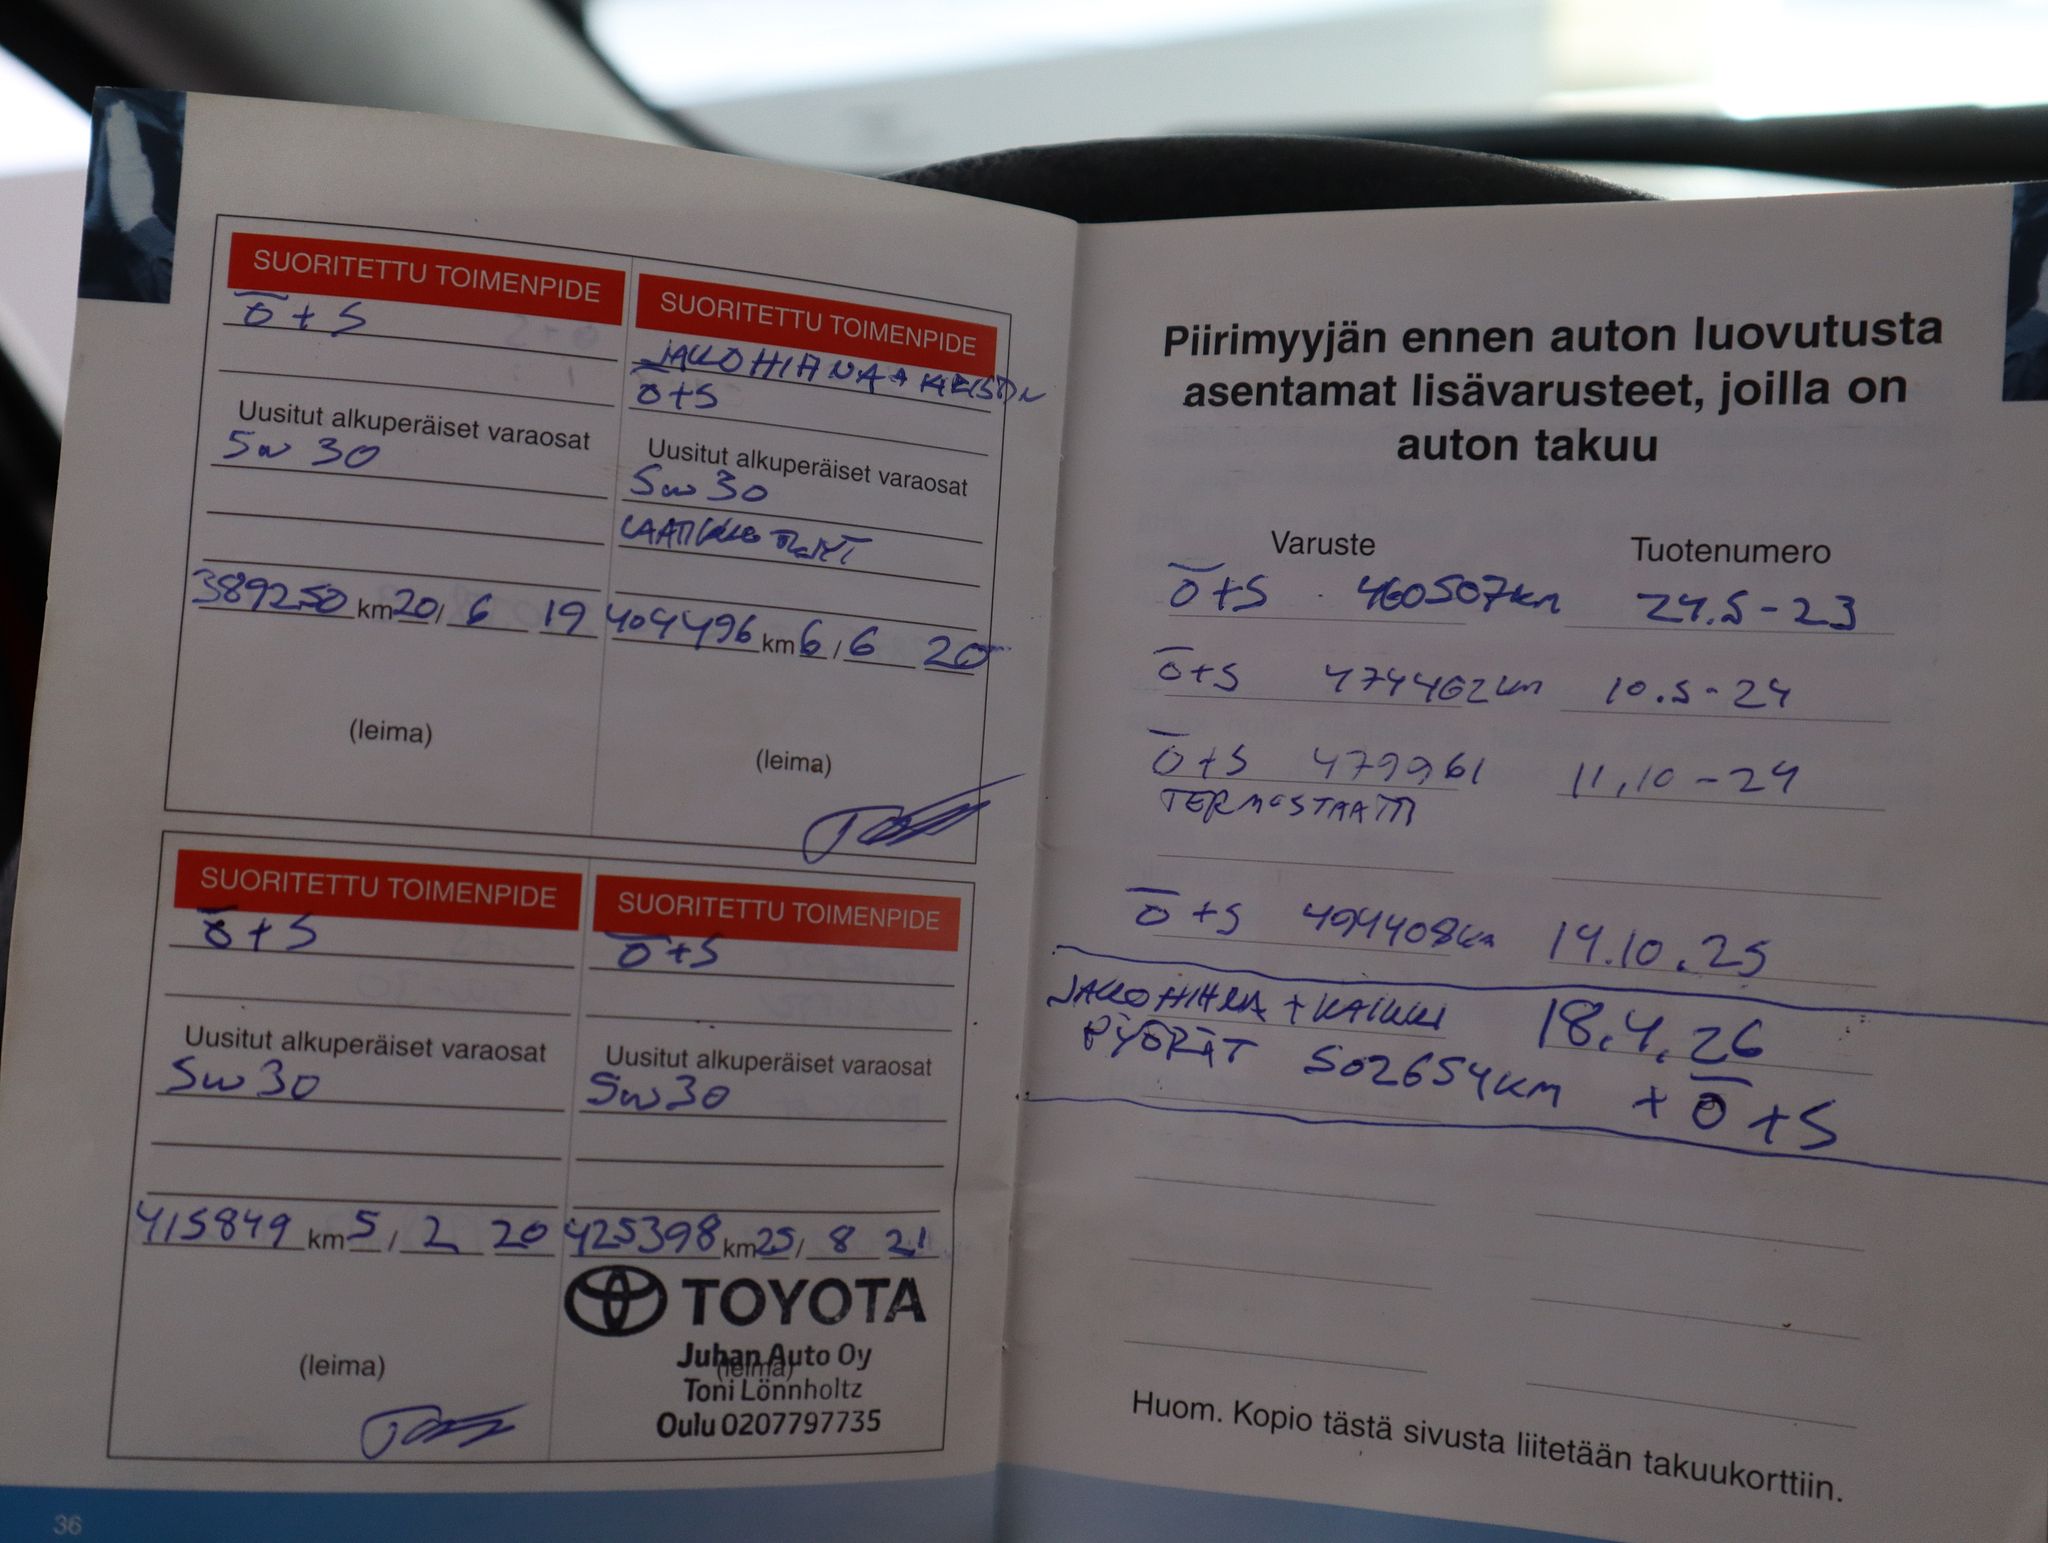 SUORITETTU TOIMENPIDE
Ō + S
Uusitut alkuperäiset varaosat
5w30
389250 km 20 / 6 19
(leima)
SUORITETTU TOIMENPIDE
JAKOHIHNA +
Ō+S
Uusitut alkuperäiset varaosat
5w30
LAATIKKO
404496 km 6 / 6 20
(leima)
SUORITETTU TOIMENPIDE
Ō+S
Uusitut alkuperäiset varaosat
5w30
415849 km 5 / 2 20
(leima)
SUORITETTU TOIMENPIDE
Ō+S
Uusitut alkuperäiset varaosat
5w30
425398 km 25 / 8 21
TOYOTA
Juhan Auto Oy
(leima)
Toni Lönnholtz
Oulu 0207797735
36
Piirimyyjän ennen auton luovutusta
asentamat lisävarusteet, joilla on
auton takuu
Varuste Tuotenumero
Ō+S 460507km 24.5-23
Ō+S 474462km 10.5-24
Ō+S 479961 11.10-24
TERMOSTAATTI
Ō+S 494408km 14.10.25
JAKOHIHNA + KAIKKI 18.4.26
PYÖRÄT 502654km + Ō+S
Huom. Kopio tästä sivusta liitetään takuukorttiin.